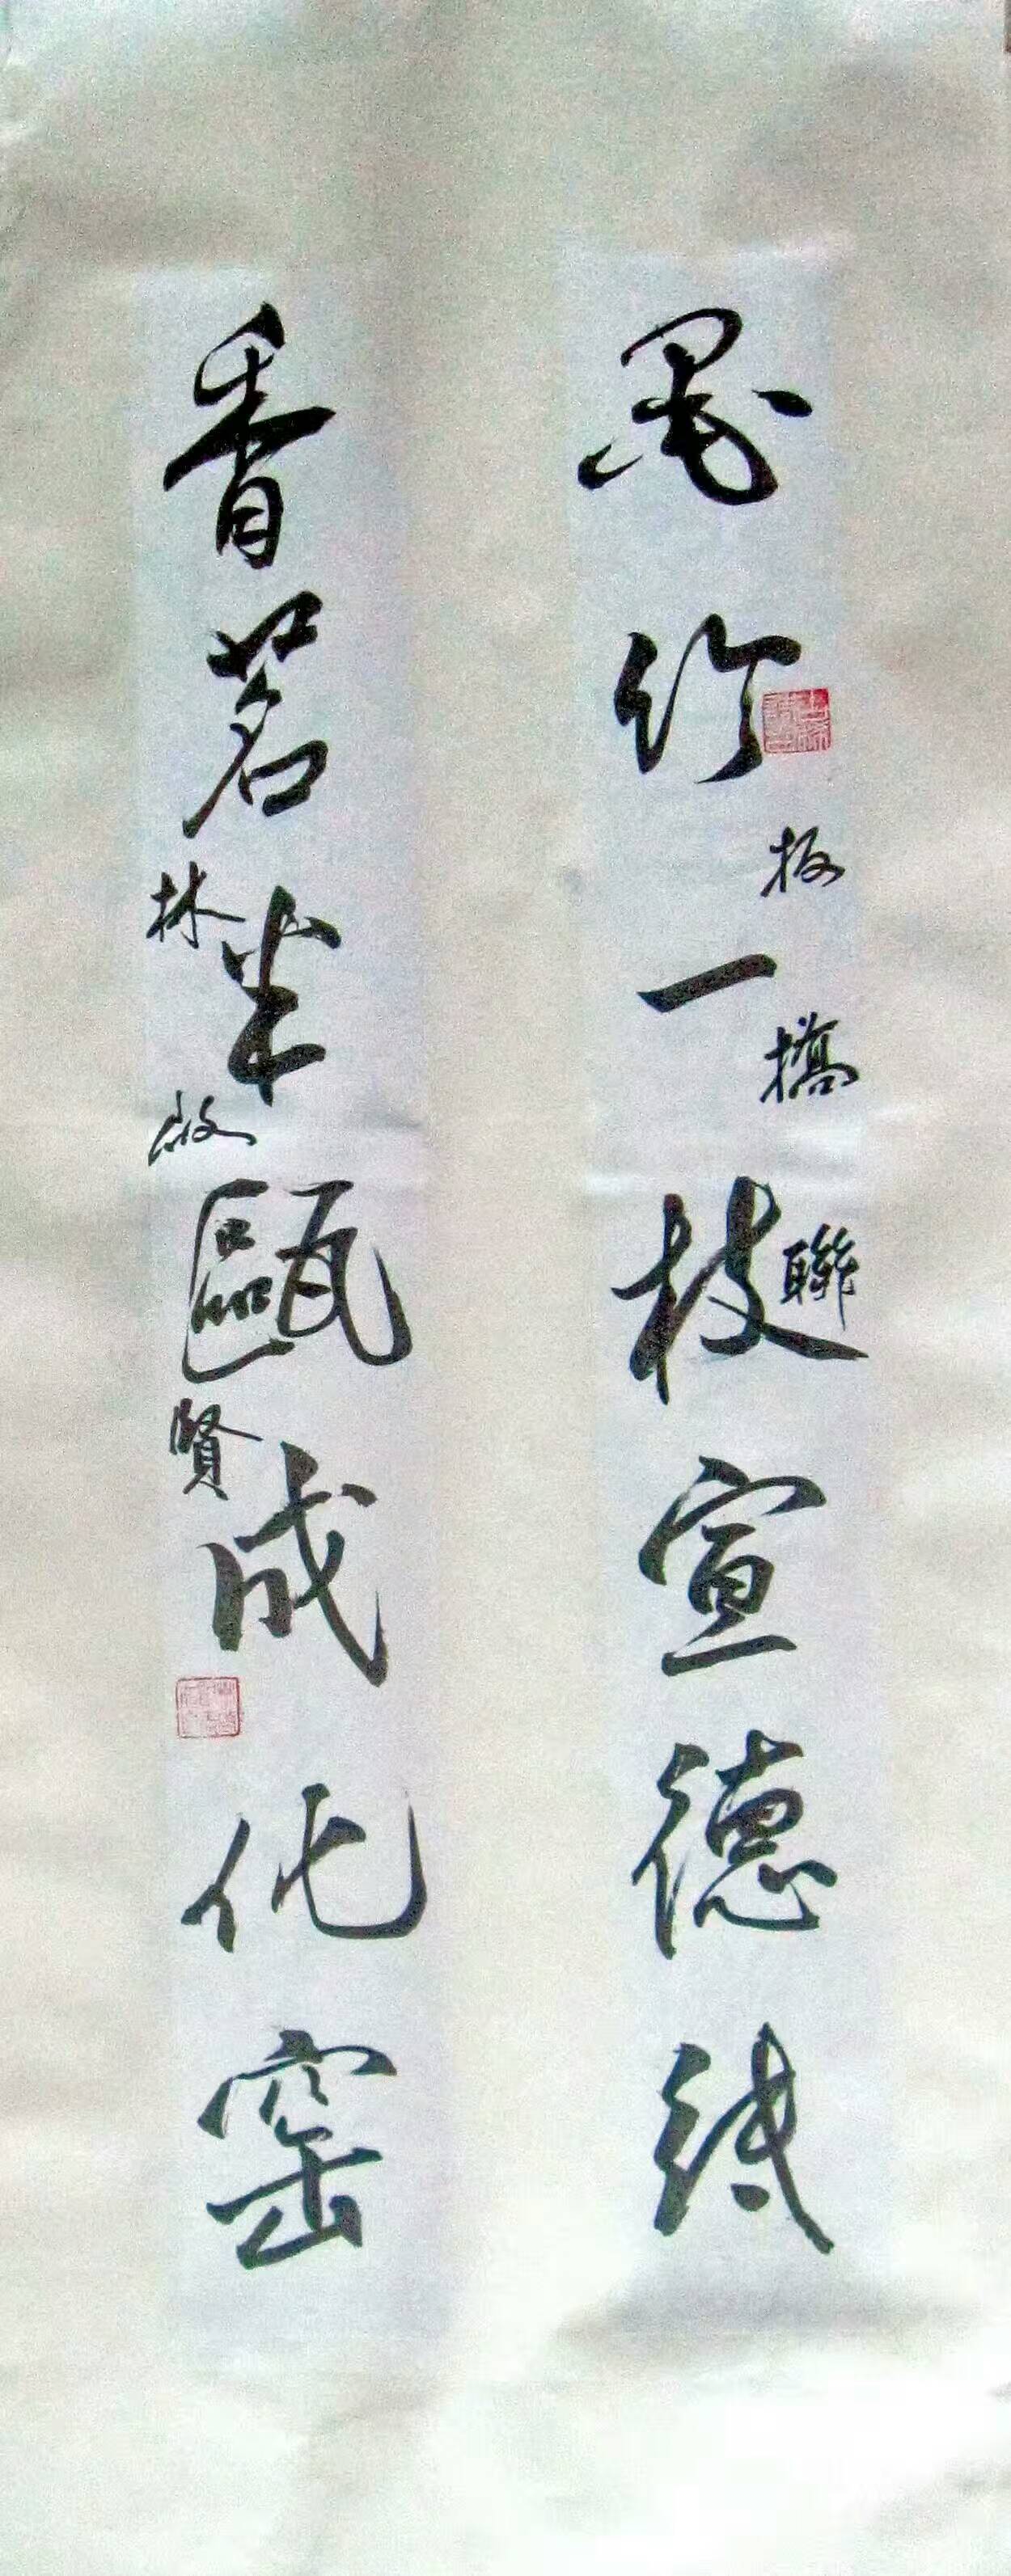 墨竹一枝宣德紙
板橋聯
香茗半甌成化窑
林啟賢